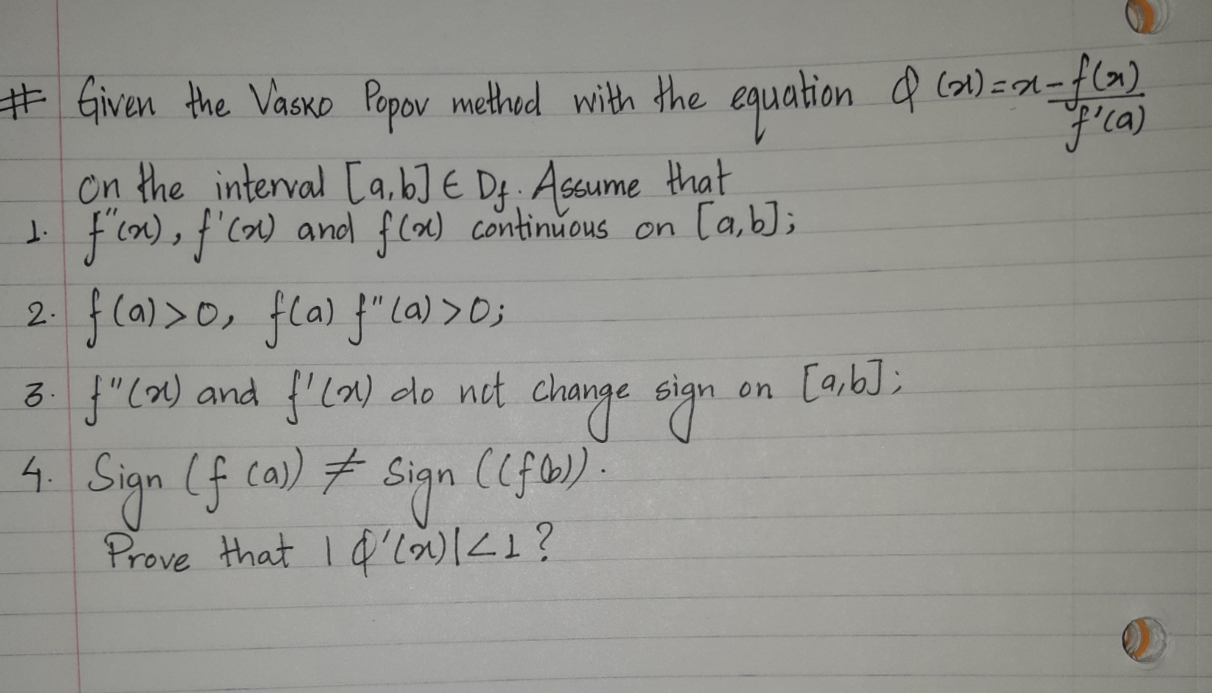 # Given the Vasko Popov method with the equation φ(x)=x-f(x)/f'(a)
on the interval [a,b] ∈ Df. Assume that
1. f"(x), f'(x) and f(x) continuous on [a,b];
2. f(a)>0, f(a) f"(a)>0;
3. f"(x) and f'(x) do not change sign on [a,b];
4. Sign (f (a)) ≠ Sign ((f(b)).
Prove that |φ'(x)|<1?